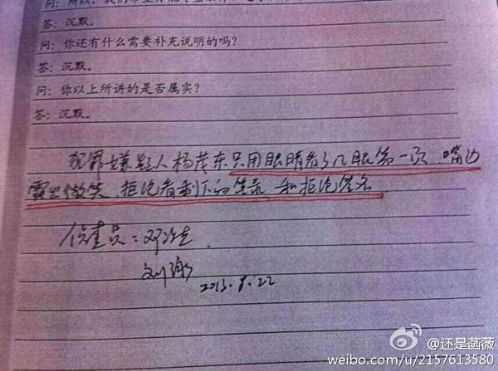 答：沉默。
问：你还有什么需要补充说明的吗？
答：沉默。
问：你以上所讲的是否属实？
答：沉默。
犯罪嫌疑人杨茂东只用眼睛看了几眼第一页 嘴边
露出微笑、拒绝看剩下的笔录 和拒绝签名
侦查员：邓
刘
2013.8.22
@还是菡薇
weibo.com/u/2157613580